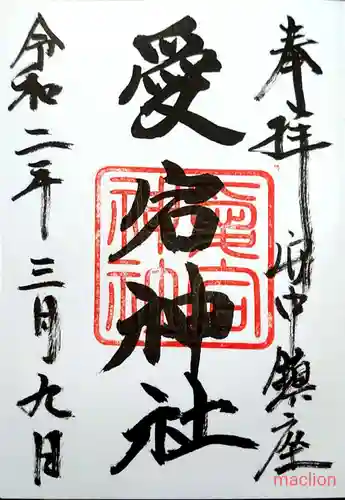 奉拝 府中鎮座
愛宕神社
愛宕神社
令和二年三月九日
maclion